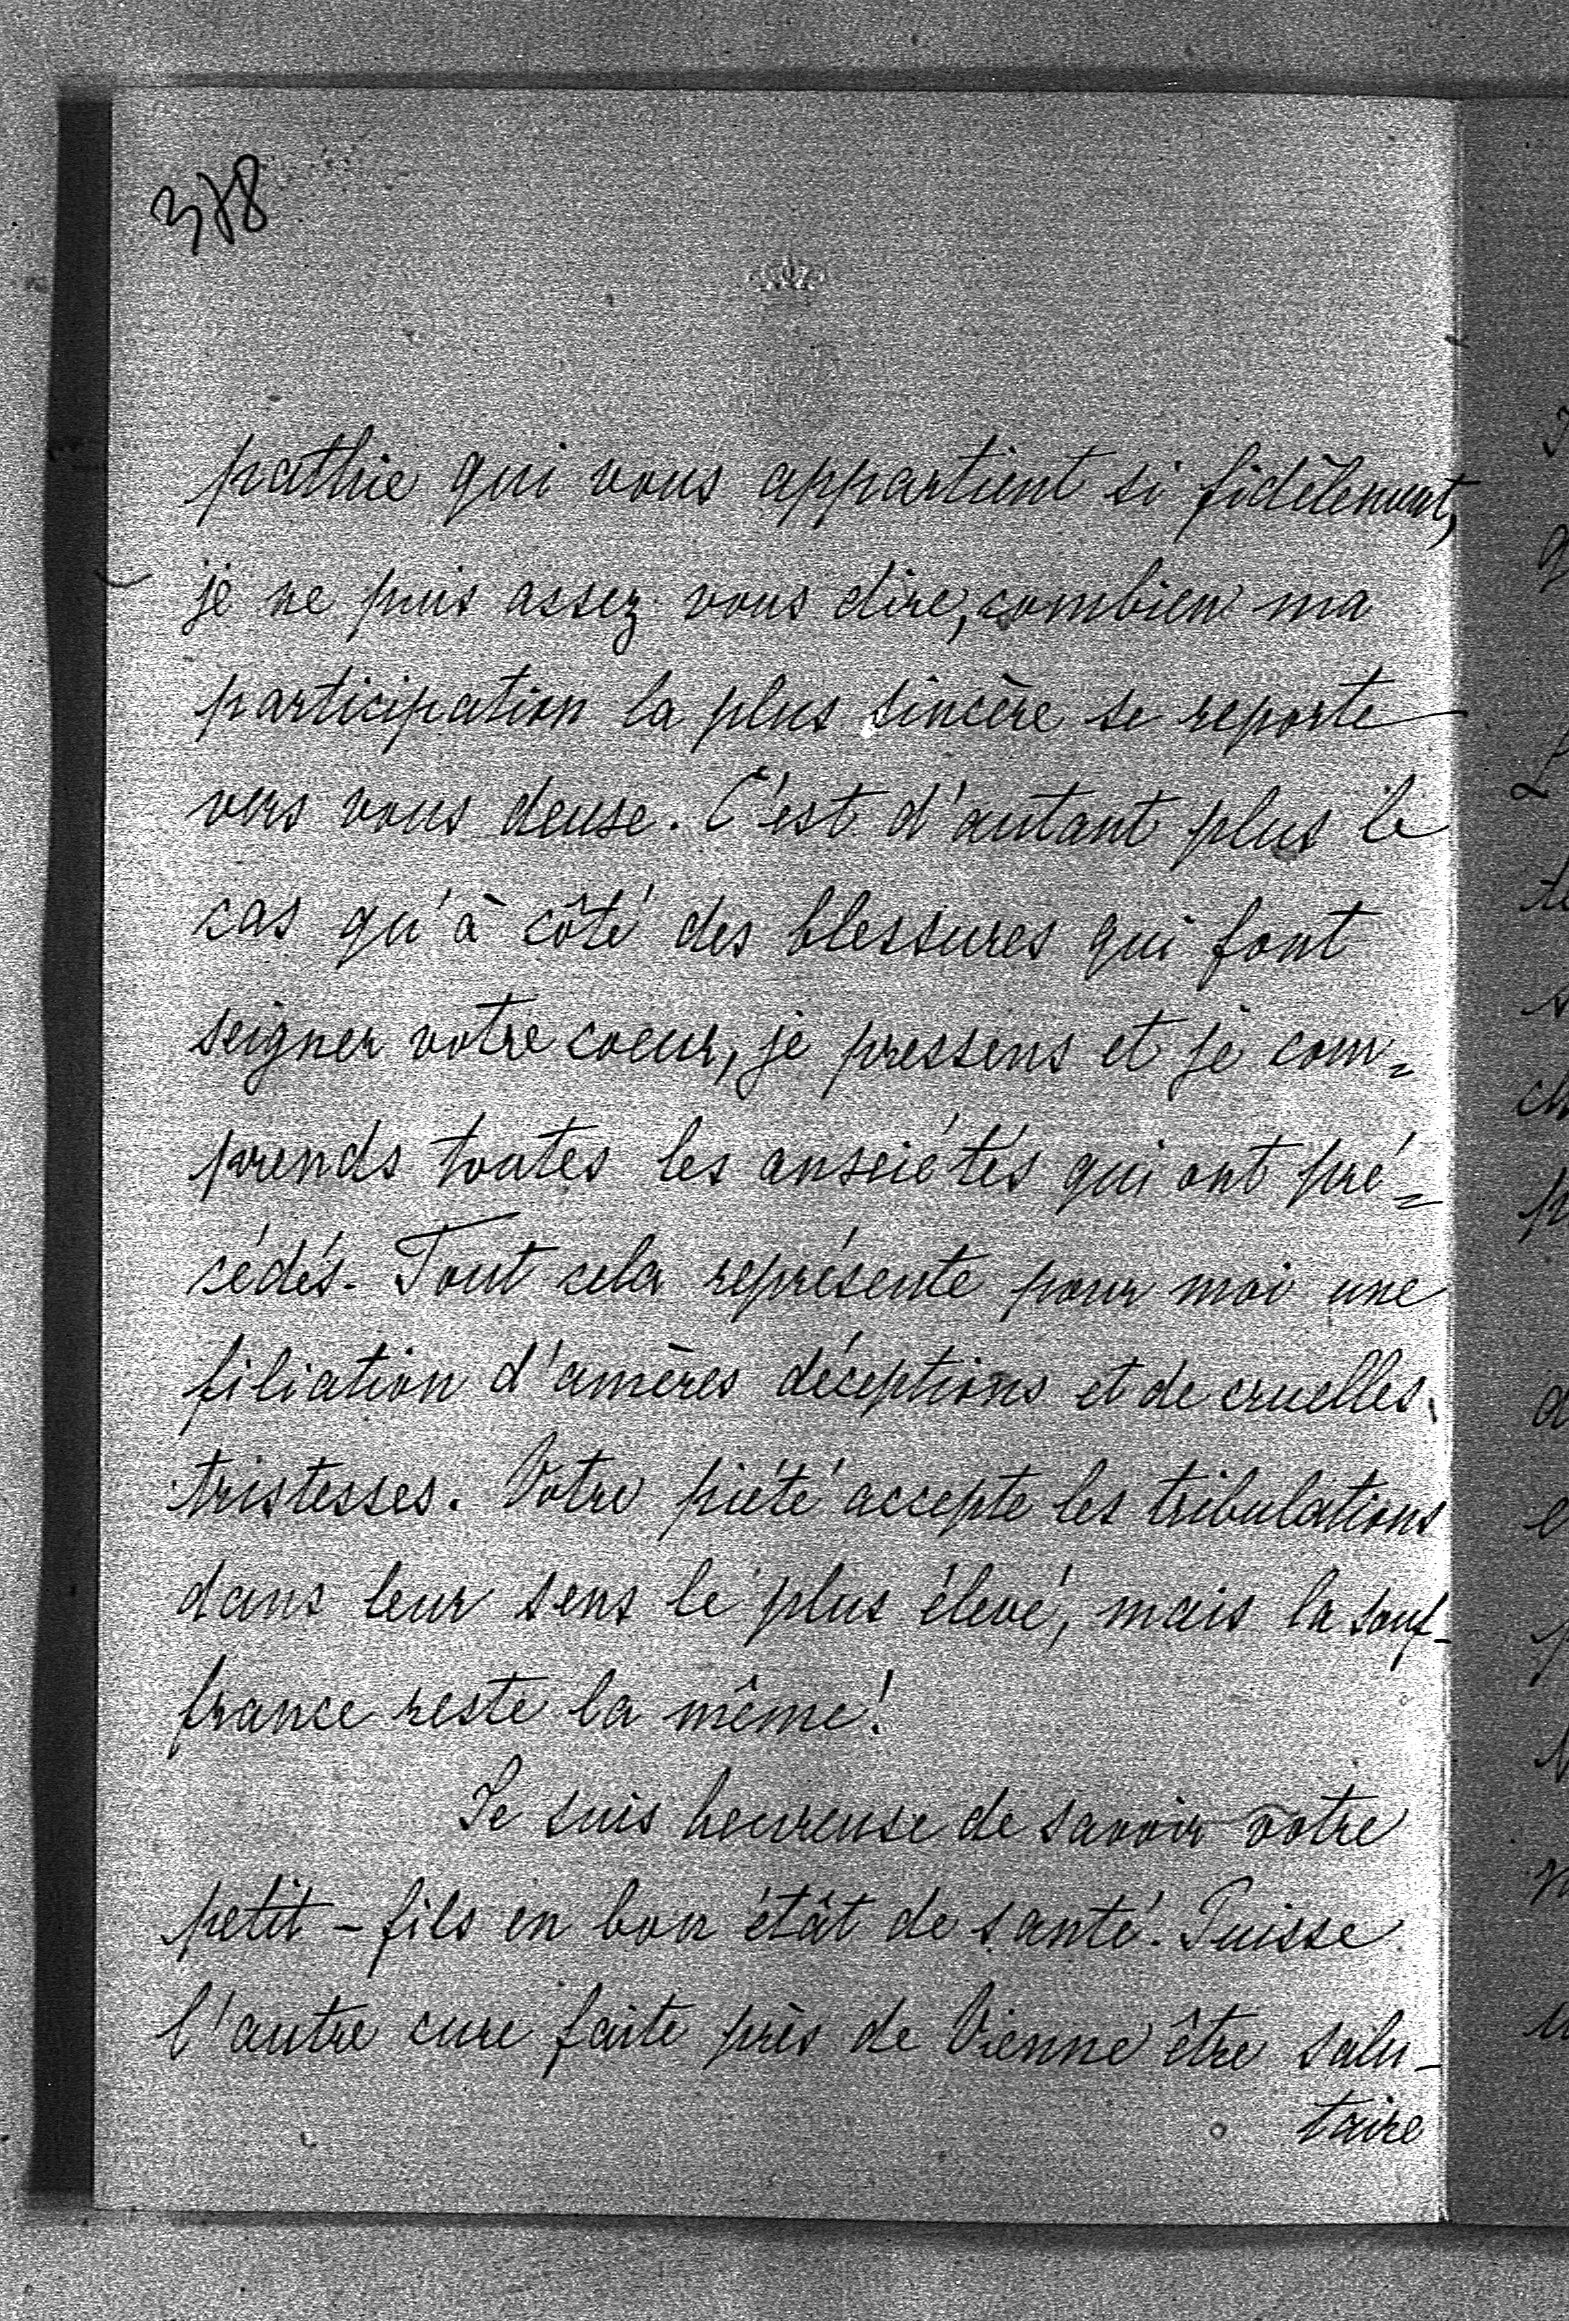 378
pathie qui vous appartient si fidèlement,
je ne puis assez vous dire, combien ma
participation la plus sincère se reporte
vers vous deuxe. C'est d'autant plus le
cas qu'à côté des blessures qui font
seigner votre coeur, je pressens et je com=
prends toutes les anxiétés qui ont pré=
cédés. Tout cela représente pour moi une
filiation d'amères déceptions et de cruelles
tristesses. Votre piété accepte les tribulations
dans leur sens le plus élevé, mais la souf-
france reste la même!
Je suis heureuse de savoir votre
petit-fils en bon étât de santé. Puisse
l'autre cure faite près de Vienne être salu-
taire